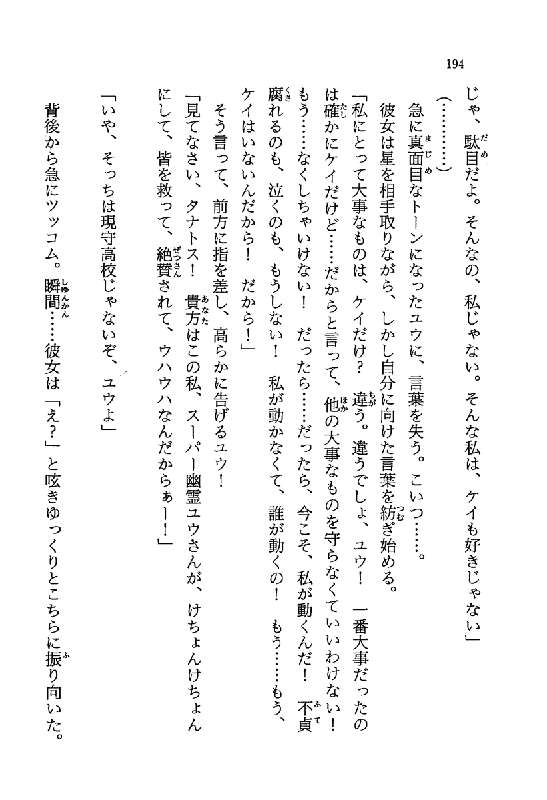 194
じゃ、駄目だよ。そんなの、私じゃない。そんな私は、ケイも好きじゃない」
（…………）
急に真面目なトーンになったユウに、言葉を失う。こいつ……。
彼女は星を相手取りながら、しかし自分に向けた言葉を紡ぎ始める。
「私にとって大事なものは、ケイだけ？　違う。違うでしょ、ユウ！　一番大事だったの
は確かにケイだけど……だからと言って、他の大事なものを守らなくていいわけない！
もう……なくしちゃいけない！　だったら……だったら、今こそ、私が動くんだ！　不貞
腐れるのも、泣くのも、もうしない！　私が動かなくて、誰が動くの！　もう……もう、
ケイはいないんだから！　だから！」
そう言って、前方に指を差し、高らかに告げるユウ！
「見てなさい、タナトス！　貴方はこの私、スーパー幽霊ユウさんが、けちょんけちょん
にして、皆を救って、絶賛されて、ウハウハなんだからぁー！」
「いや、そっちは現守高校じゃないぞ、ユウよ」
背後から急にツッコム。瞬間……彼女は「え？」と呟きゆっくりとこちらに振り向いた。